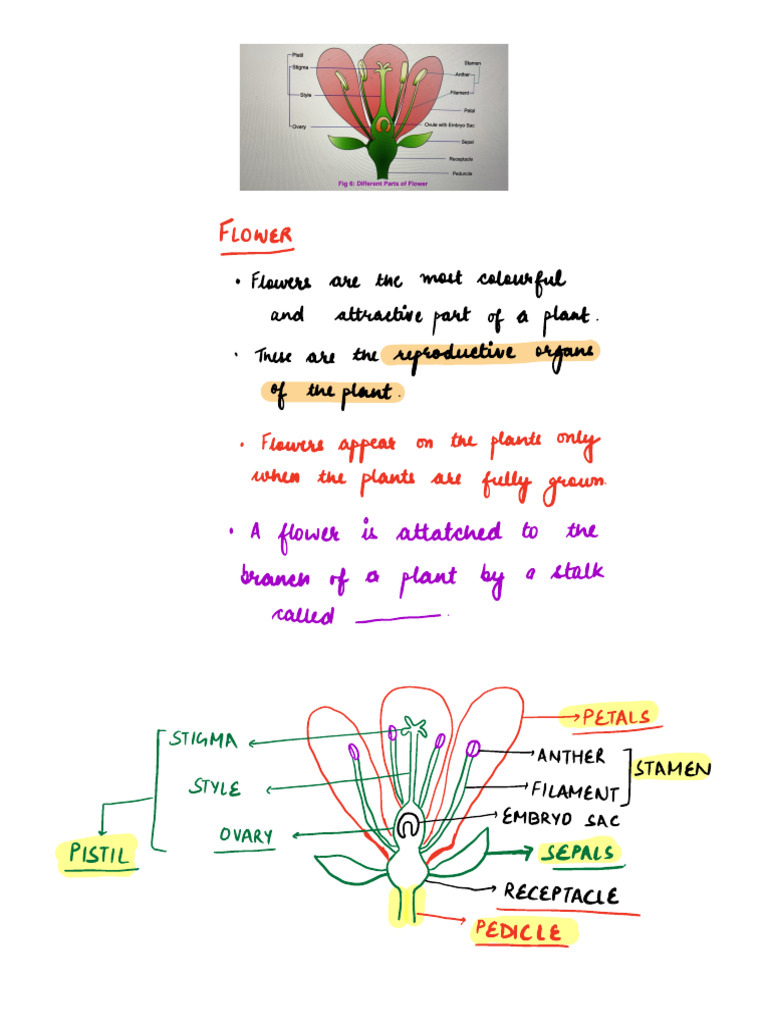 Pistil
Stigma
Style
Ovary
Stamen
Anther
Filament
Petal
Ovule with Embryo Sac
Sepal
Receptacle
Peduncle
Fig 6: Different Parts of Flower
FLOWER
• Flowers are the most colourful
and attractive part of a plant.
• These are the reproductive organs
of the plant.
• Flowers appear on the plants only
when the plants are fully grown.
• A flower is attatched to the
branch of a plant by a stalk
called ______.
STIGMA
STYLE
OVARY
PISTIL
PETALS
ANTHER
STAMEN
FILAMENT
EMBRYO SAC
SEPALS
RECEPTACLE
PEDICLE